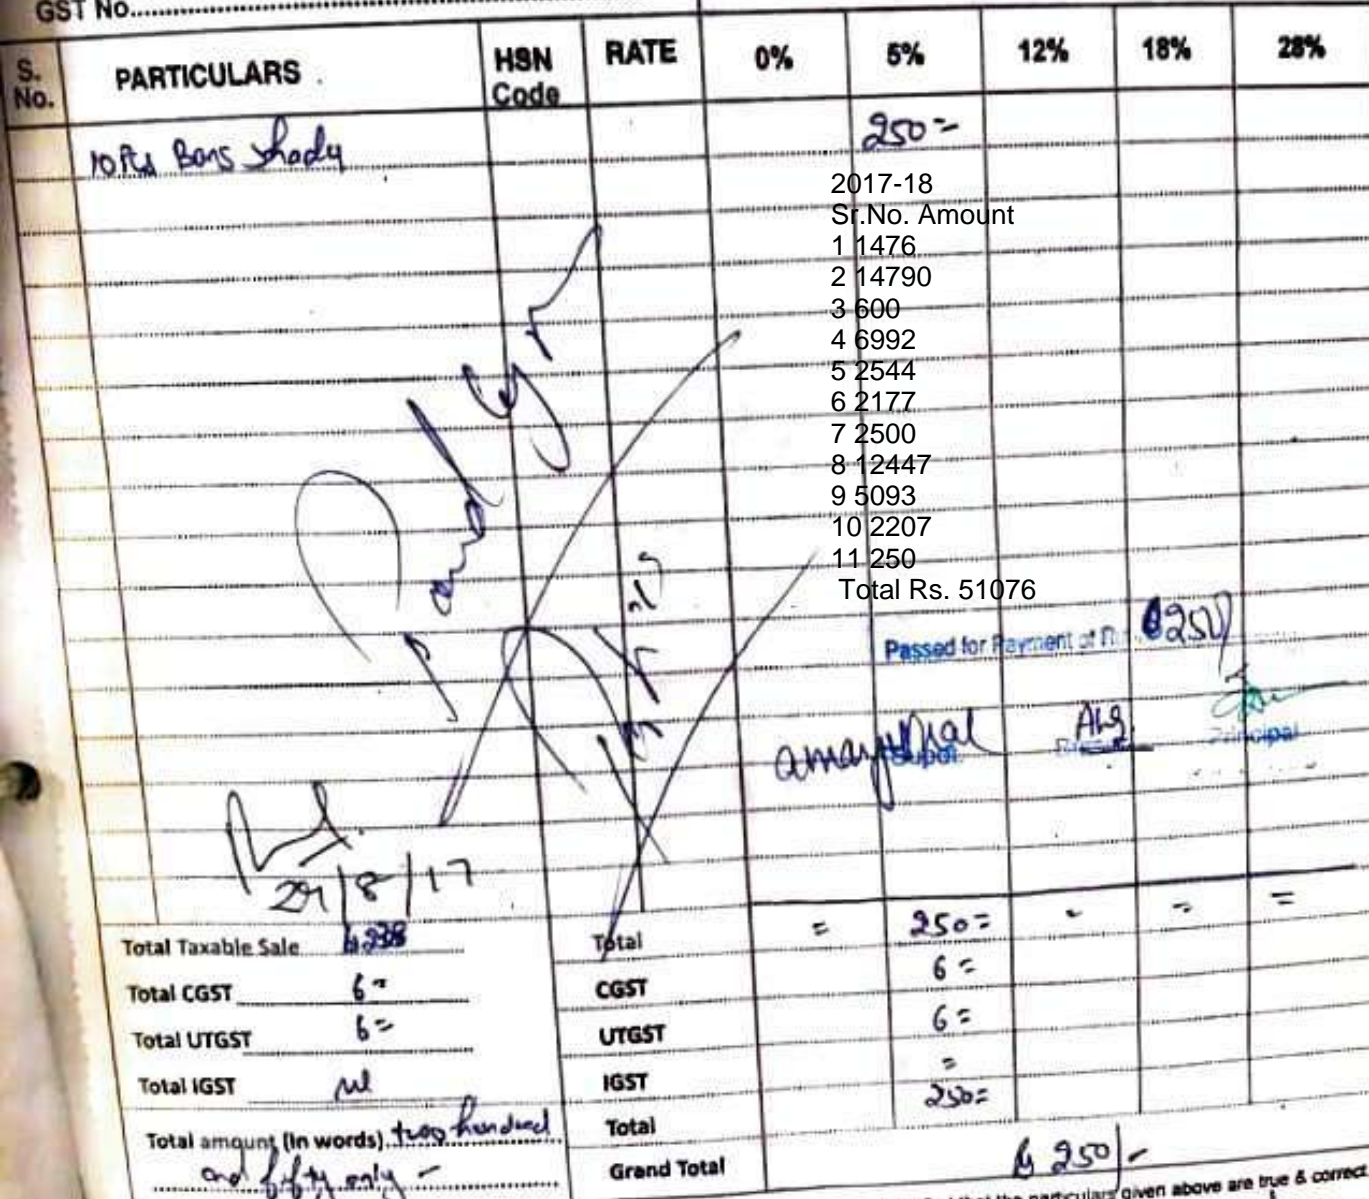 GST No.
S. No. PARTICULARS HSN Code RATE 0% 5% 12% 18% 28%
Bans 250=
2017-18
Sr.No. Amount
1 1476
2 14790
3 600
4 6992
5 2544
6 2177
7 2500
8 12447
9 5093
10 2207
11 250
Total Rs. 51076
Passed for Payment of 250/
Supdt. Principal
29/8/17
Total Taxable Sale 238
Total CGST 6=
Total UTGST 6=
Total IGST nil
Total amount (In words) two hundred
and fifty only -
Total = 250= - = =
CGST 6=
UTGST 6=
IGST =
Total 250=
Grand Total 250/-
that the particulars given above are true & correct